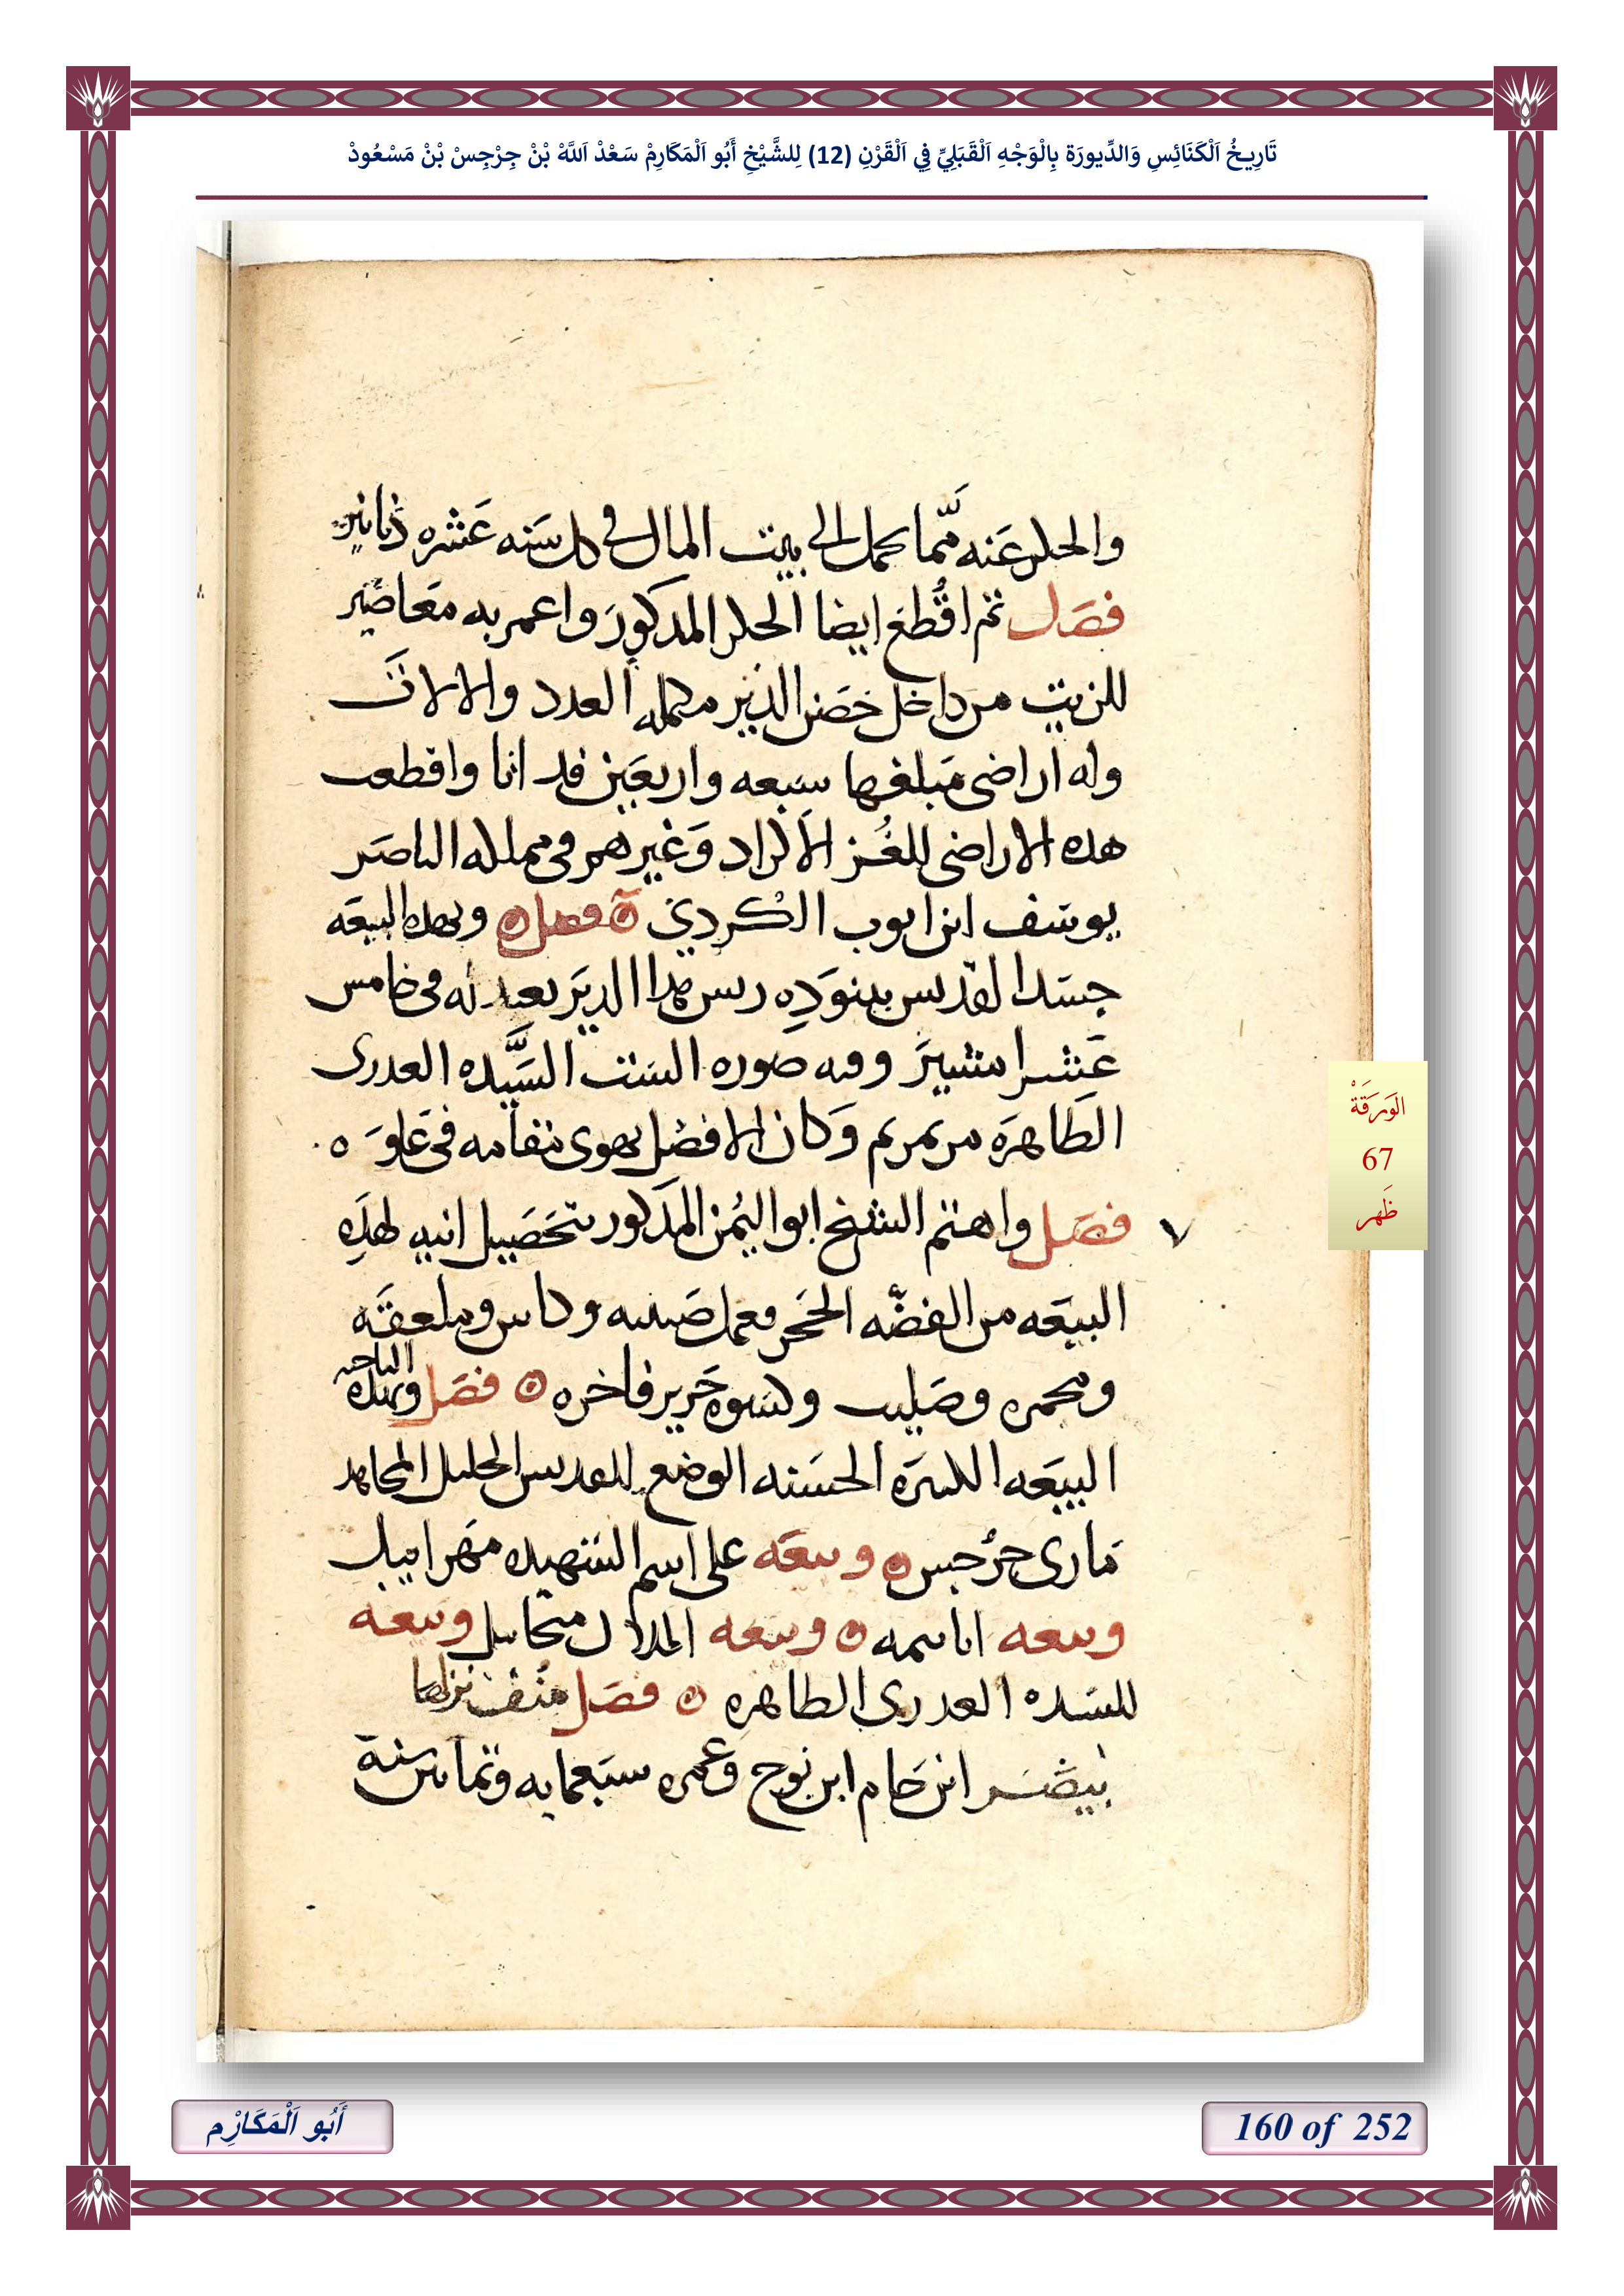 تَارِيخُ اَلْكَنَائِسِ وَالدِّيورَة بِالْوَجْهِ اَلْقَبَلِيِّ فِي اَلْقَرْنِ (12) لِلشَّيْخِ أَبُو اَلْمَكَارِمْ سَعْدْ اَللَّهْ بْنْ جِرْجِسْ بْنْ مَسْعُودْ
والحكر عنه مما يحمل الى بيت المال فى كل سنه عشره دنانير
فصل ثم اقطع ايضا الحكر المذكور واعمر به معاصير
للزيت من داخل حصن الدير مكمله العدد والالات
وله اراضى مبلغها سبعه واربعين فدانا واقطعت
هده الاراضى للغز الاكراد وغيرهم فى مملكه الناصر
يوسف ابن ايوب الكردي فصل وبهده البيعه
جسد القديس ببنوده ريس هدا الدير يعيد له فى خامس
عشر امشير وفيه صوره الست السيده العدرى
الطاهره مرتمريم وكان الافضل يهوى مقامه فى علو
٧ فصل واهتم الشيخ ابو اليمن المذكور بتحصيل انيه لهده
البيعه من الفضه الحجر فعمل صينيه وكاس وملعقه
ومجمره وصليب وكسوه حرير فاخره فصل وبهده الناحيه
البيعه الكبيره الحسنه الوضع للقديس الجليل المجاهد
مارى جرجس وبيعه على اسم الشهيده مهرابيل
وبيعه اباتيمه وبيعه الملاك ميخاييل وبيعه
للسيده العدرى الطاهره فصل منف نزلها
بيصر ابن حام ابن نوح وعمره سبعمايه وثمانين سنة
الوَرَقَةْ
67
ظَهر
أَبُو اَلْمَكَارِْم
160 of 252